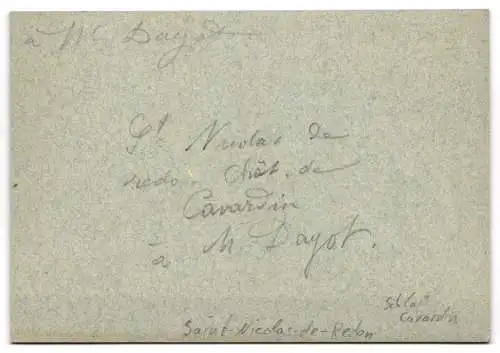 à Mr Dayot
St Nicolas de
redo. Chât. de
Cavardin
à M. Dayot.
Schloß
Cavardin
Saint-Nicolas-de-Redon